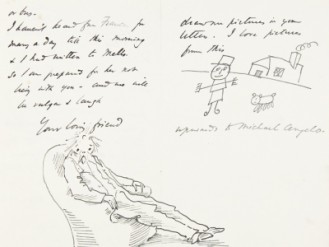 or bus.
I haven't heard from for
many a day till this morning
& I had written to Mells
so I am prepared for her not
being with you - and we will
be vulgar & laugh
Your loving friend
draw me pictures in your
letter. I love pictures
from this
upwards to Michael Angelo